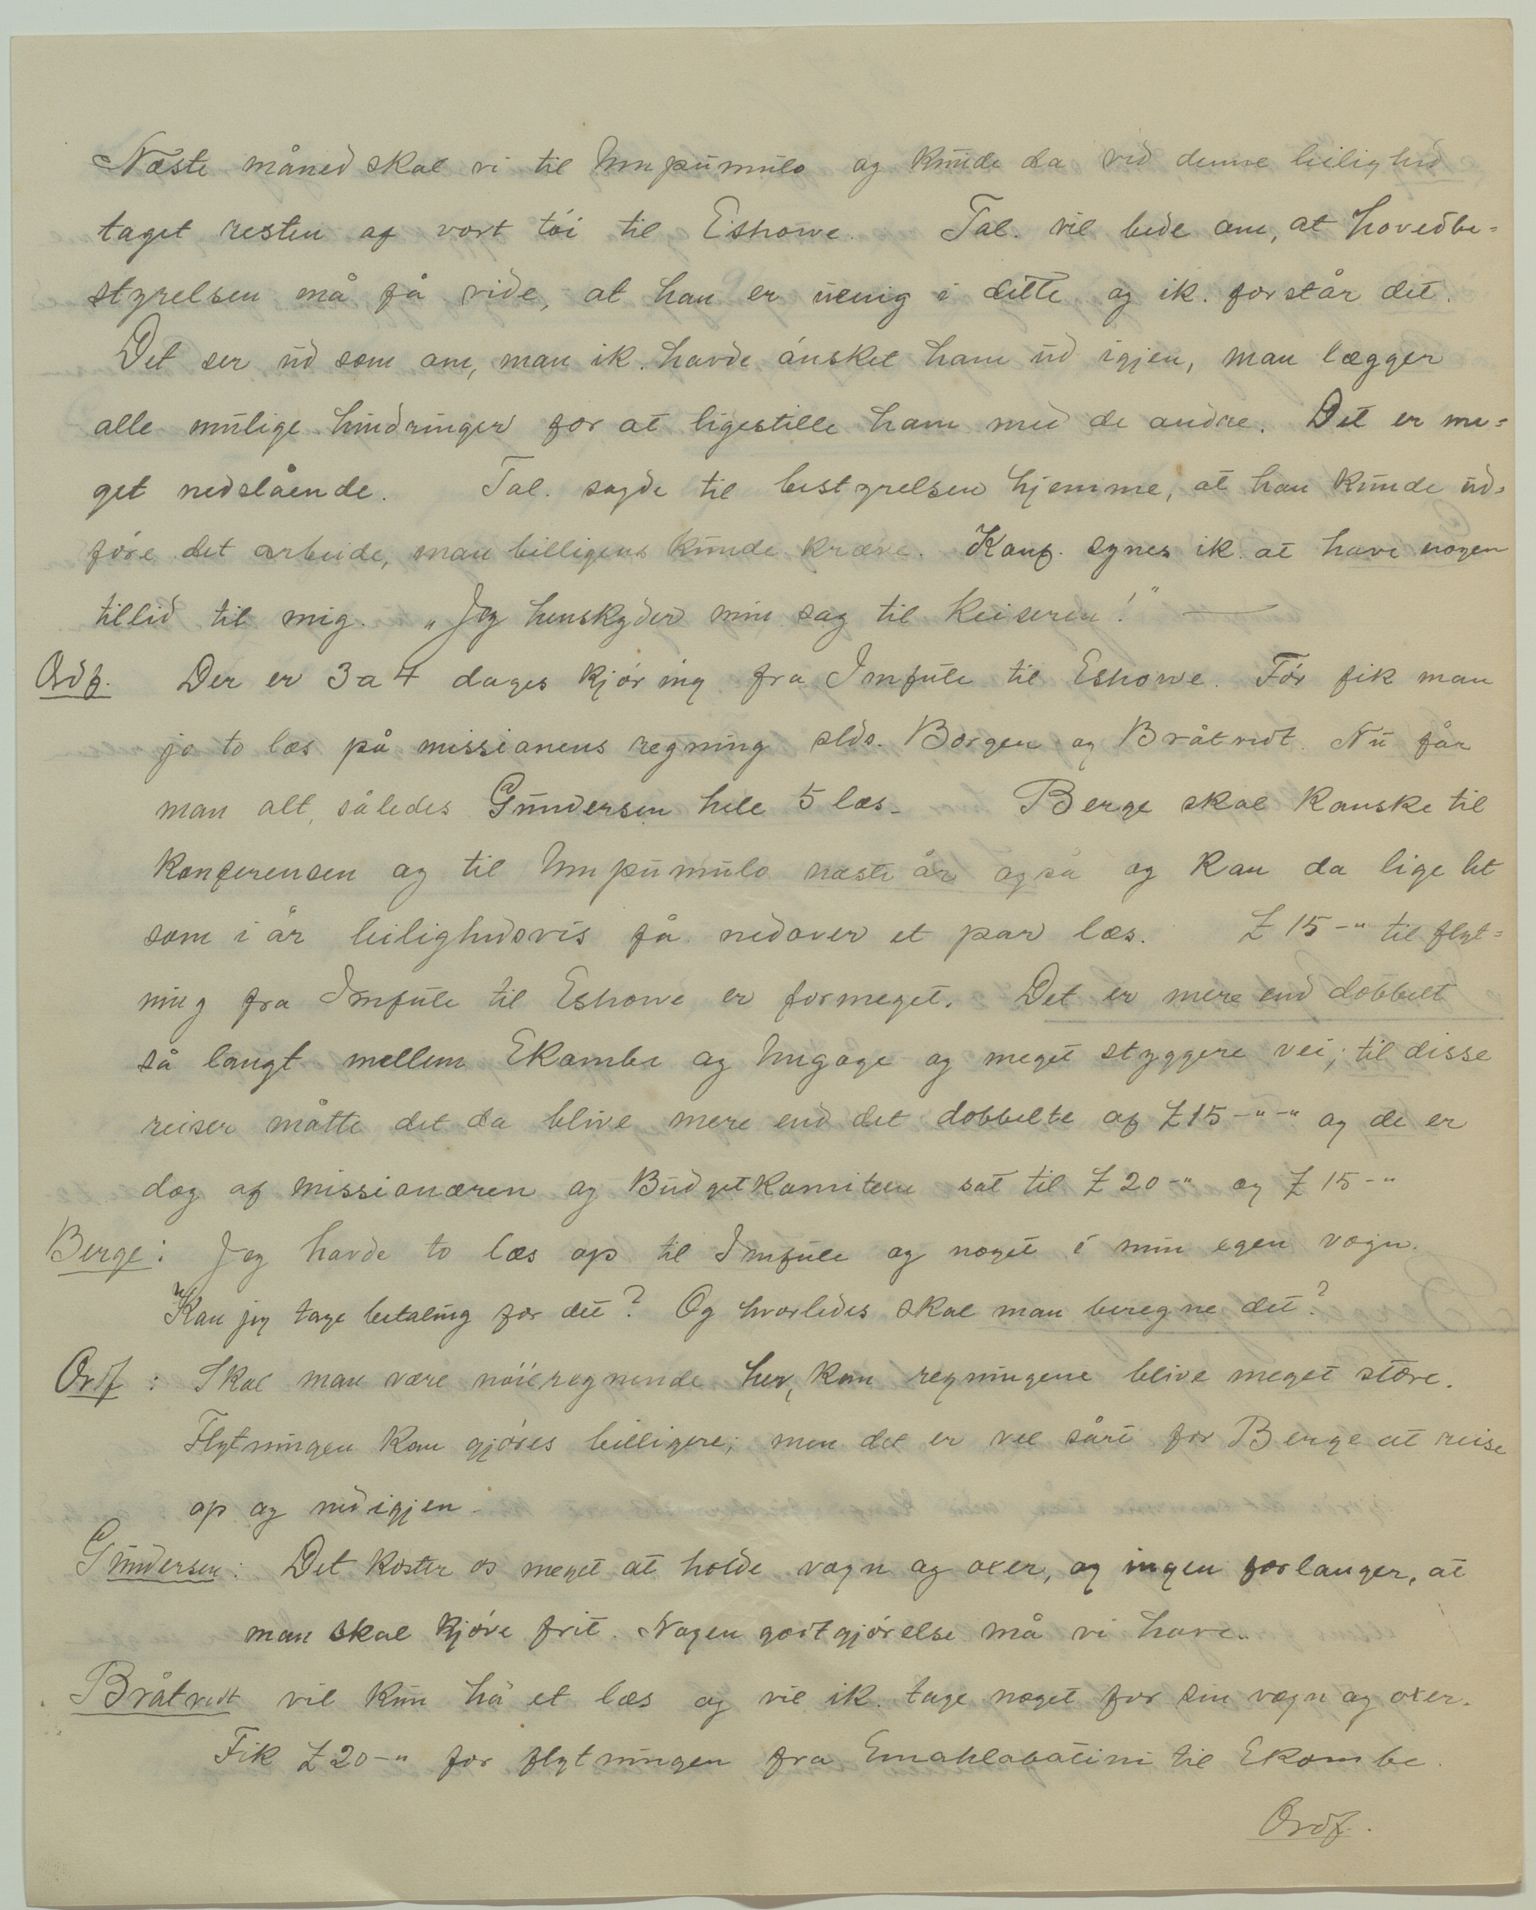 Næste måned skal vi til Umpumulo og kunde da ved denne leilighed
taget resten af vort tøi til Eshowe. Tal. vil bede om, at hovedbe=
styrelsen må få vide, at han er uenig i dette og ik. forstår det.
Det ser ud som om, man ik. havde ønsket ham ud igjen, man lægger
alle mulige hindringer for at ligestille ham med de andre. Det er me=
get nedslående. Tal. sagde til bestyrelsen hjemme, at han kunde ud=
føre det arbeide, man billigens kunde kræve. Konf. synes ik. at have nogen
tillid til mig. „Jeg henskyder min sag til keiseren!" —
Ordf. Der er 3 a 4 dages kjøring fra Imfule til Eshowe. Før fik man
jo to læs på missionens regning slds. Borgen og Bråtvedt. Nu får
man alt, således Gundersen hele 5 læs. Berge skal kanske til
konferensen og til Umpumulo næste år også og kan da lige let
som i år leilighedsvis få nedover et par læs. £ 15-" til flyt=
ning fra Imfule til Eshowe er formeget. Det er mere end dobbelt
så langt mellem Ekombe og Ungoye og meget styggere vei; til disse
reiser måtte det da blive mere end det dobbelte af £15-"-" og de er
dog af missionæren og Budgetkomiteen sat til £ 20-" og £ 15-"
Berge: Jeg havde to læs op til Imfule og noget i min egen vogn.
Kan jeg tage betaling for det? Og hvorledes skal man beregne det?
Ordf: Skal man være nøieregnende her, kan regningene blive meget store.
Flytningen kan gjøres billigere; men det er vel sårt for Berge at reise
op og ned igjen.
Gundersen: Det koster os meget at holde vogn og oxer, og ingen forlanger, at
man skal kjøre frit. Nogen godtgjørelse må vi have.
Bråtvedt vil kun ha et læs og vil ik. tage noget for sin vogn og oxer.
Fik £ 20-" for flytningen fra Emahlabatini til Ekombe.
Ordf.